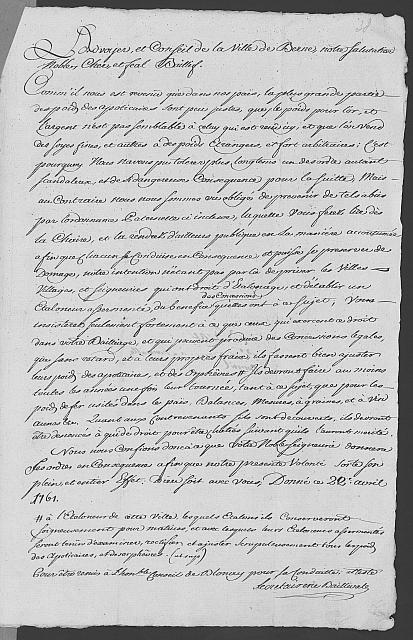 L'advoyer, et Conseil de la Ville de Berne, notre Salutation
Noble, Cher, et feal Baillif.
Comm'il nous est revenu que dans nos païs, la plus grande partie
des poids des apoticaires sont peu justes, que le poids pour l'or, et
l'argent n'est pas semblable à celuy qui est et que l'on vend
des soyes fines, et autres à des poids Etrangers, et fort arbitraires; C'est
pourquoy Nous n'avons pu tolerer plus longtems un desordre autant
scandaleux, et de dangereuse Consequence pour la suitte, Mais
au Contraire Nous nous sommes vus obligés de prevenir de tels abus
par l'ordonnance Cy incluse, laquelle Vous ferés lire dès
la Chaire, et la rendrés d'ailleurs publique en la maniere accoutumée
afin que Chacun se Conduise en Consequence, et puisse se preserver de
Domage, notre intention n'étant pas par là de priver les Villes
Villages, et seigneuries qui ont droit d'Etalonage, et d'établir un
Etaloneur assermenté, du benefice qu'elles ont à ce sujet, Vous
des Concessions
insisterés seulement fortement à ce que ceux qui exercent ce droit
dans vôtre Bailliage, et qui peuvent produire des Concessions legales,
que sans retard, et à leurs propres fraix ils fassent bien ajuster
leurs poids des apoticaires, et des Orphèvres # Ils devront faire au moins
toutes les années une fois leur tournée, tant à ce sujet, que pour les
poids de fer usités dans le païs, Balances, Mesures, à grains, et à Vin
aunes &c. Quant aux Contrevenants s'ils sont decouverts, ils devront
être denoncés à qui de droit pour être chatiés suivant qu'ils l'auront merité.
Nous Nous Confions donc à ce que Vôtre Noble Seigneurie donnera
ses ordres en Consequence afin que notre presente Volonté sorte son
plein, et entier Effet. Dieu soit avec Vous, Donné ce 22e avril
1761.
# à l'Etaloneur de cette Ville, lesquels Etalons ils Conserveront
soigneusement pour matrices, et avec lesquels leurs Etaloneurs assermentés
seront tenus d'examiner, rectifier et ajuster scrupuleusement tous les poids
des Apoticaires, et des orphèvres.
Pour être remis à l'honble Conseil de Blonay pour sa Conduitte, atteste
Secretairerie Baillivale